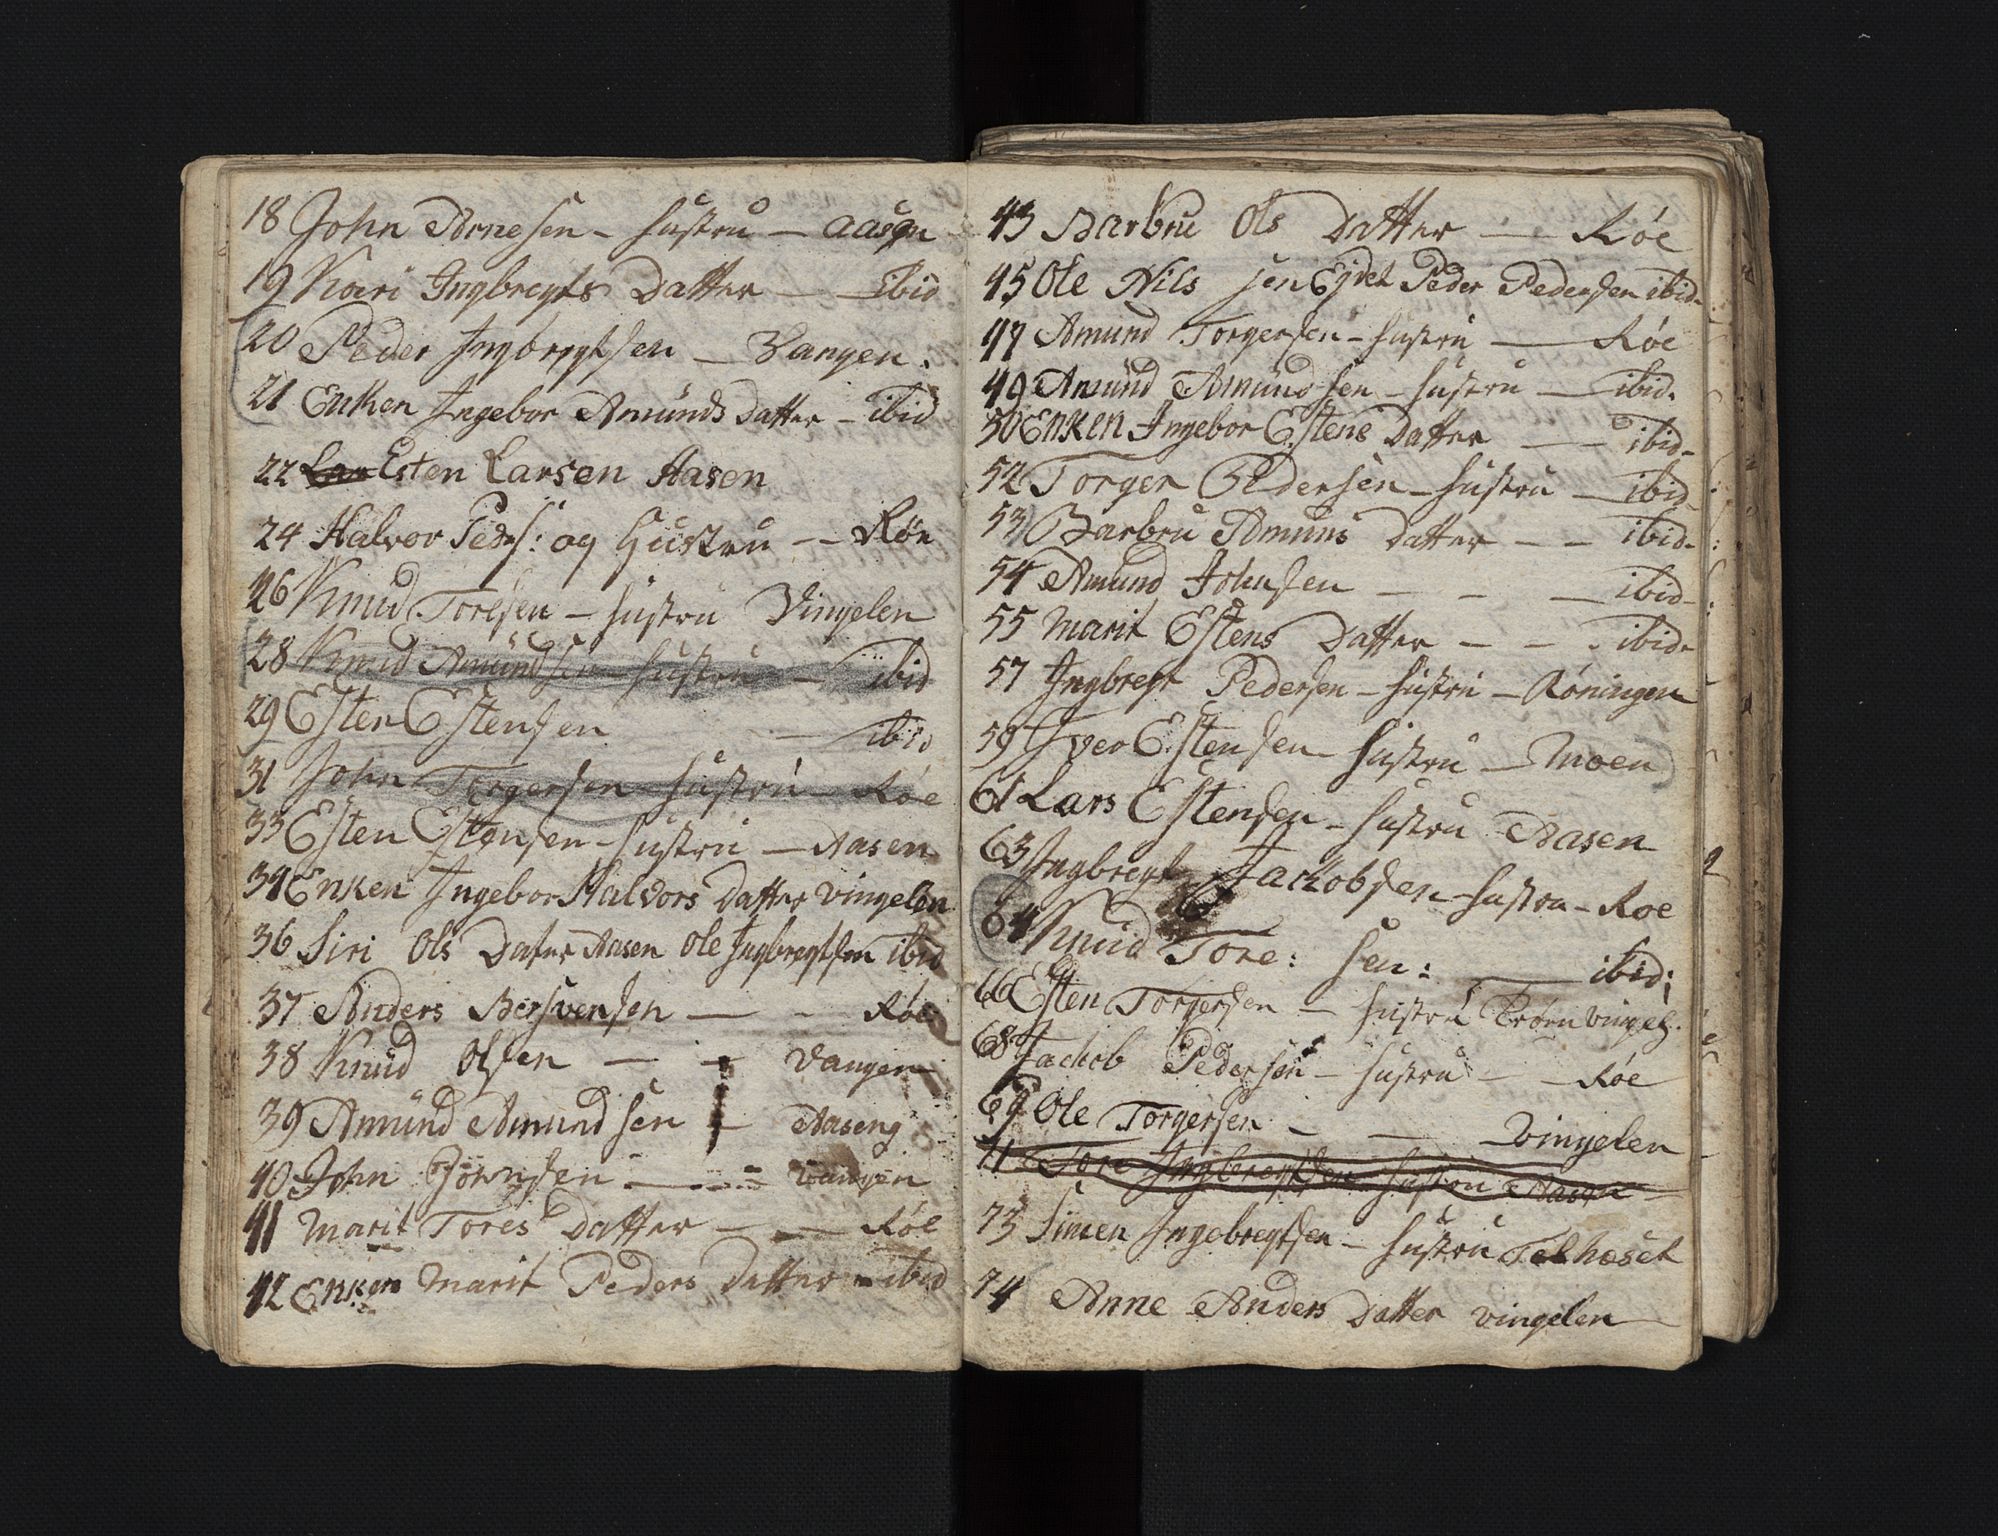 18 John Arnesen - hustru - aasen
19 Kari Ingbregts Datter - ibid
20 Peder Ingbregtsen - Vangen.
21 Enken Ingebor Amunds Datter - ibid
22 Lar Esten Larsen Aasen
24 Halvor Peders: og Hustru -- Røe
26 Knud Toresen - hustru Vingelen
28 Knud Amundsen - hustru - ibid
29 Esten Estensen - ibid
31 John Torgersen hustru Røe
33 Esten Estensen - hustru - Aasen
34 Enken Ingebor Halvors Datter vingelen
36 Siri Ols Dater Aasen Ole Ingbregtsen ibid
37 Anders Bersvensen - - Røe
38 Knud Olsen - - Vangen
39 Amund Amundsen - Aaseng
40 John Johnsen - Vangen
41 Marit Tores Datter - - Røe
42 Enken Marit Peders Datter - ibid
43 Barbru Ols Datter - Røe
45 Ole Nils sen Peder Pedersen ibid-
47 Amund Torgersen - hustru - Røe
49 Amund Amundsen - hustru - ibid.
50 Enken Ingebor Estens Datter - ibid-
52 Torger Pedersen - hustru - ibid-
53 Barbru Amuns Datter - - ibid-
54 Amund Johnsen - - - ibid-
55 Marit Estens Datter - - - ibid-
57 Ingbregt Pedersen - hustru - Røningen
59 Iver Estensen - hustru - Moen
61 Lars Estensen - hustru Aasen
63 Ingbregt Jackobsen - hustru - Røe
64 Knud Tore: sen: - ibid:
66 Esten Torgersen - hustru Trøen vingel.
68 Jackob Pedersen - hustru - - Røe
69 Ole Torgersen - - - vingelen
71 Tore Ingbregtsen hustru Aasen
73 Simen Ingebregtsen - hustru Telneset
74 Anne Anders Datter vingelen